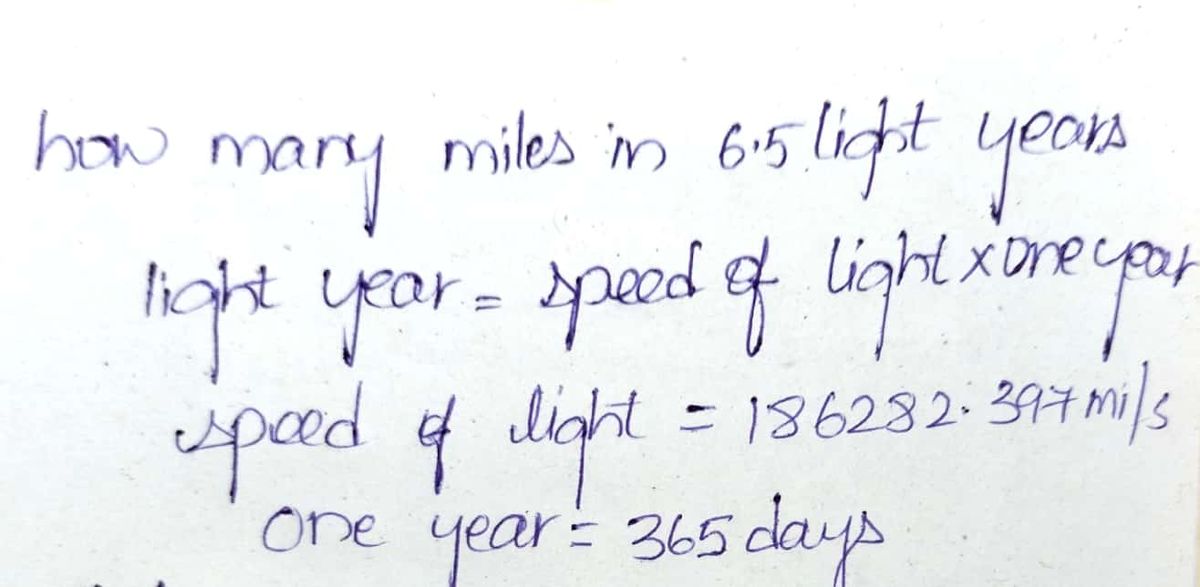 how many miles in 6.5 light years
light year = speed of light x one year
speed of light = 186282.397 mi/s
one year = 365 days